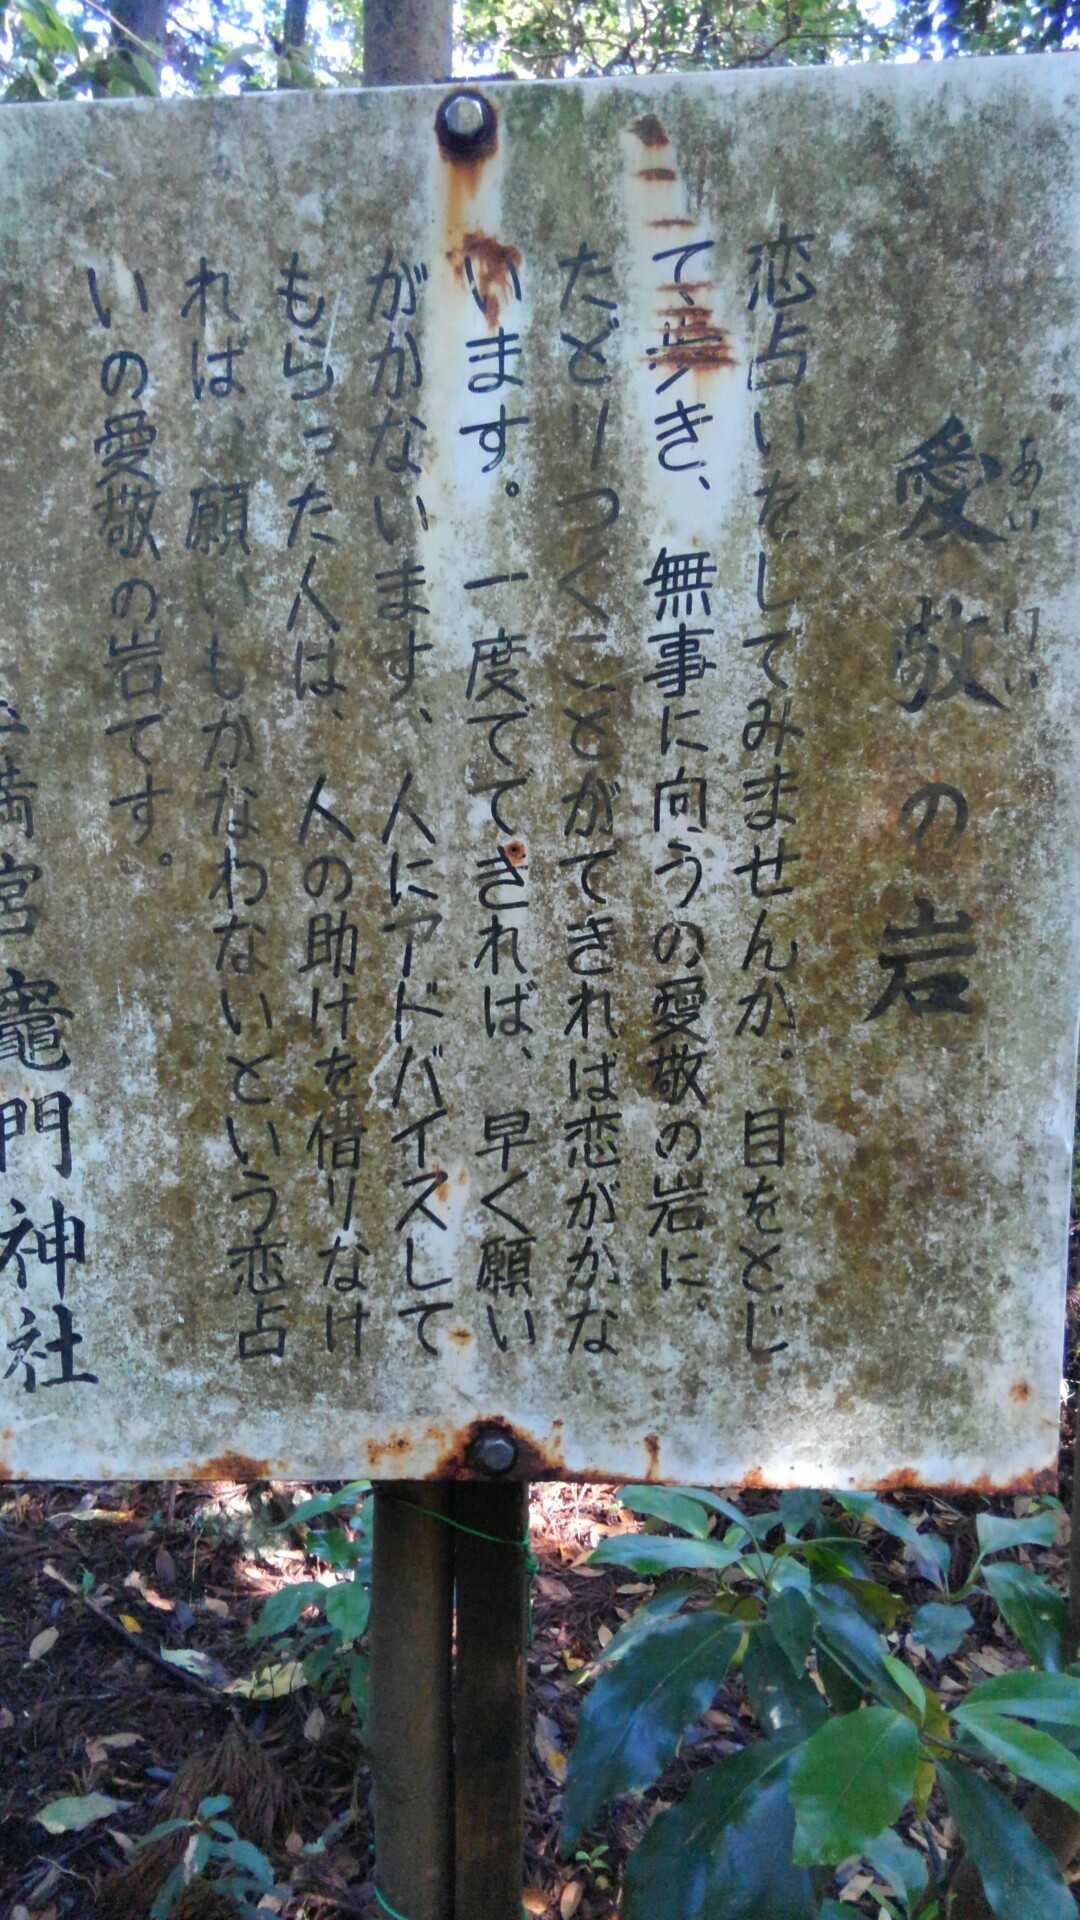 愛敬の岩
あい けい
恋占いをしてみませんか。目をとじ
て歩き、無事に向うの愛敬の岩に、
たどりつくことができれば恋がかな
います。一度でできれば、早く願い
がかないます、人にアドバイスして
もらった人は、人の助けを借りなけ
れば、願いもかなわないという恋占
いの愛敬の岩です。
満宮竈門神社